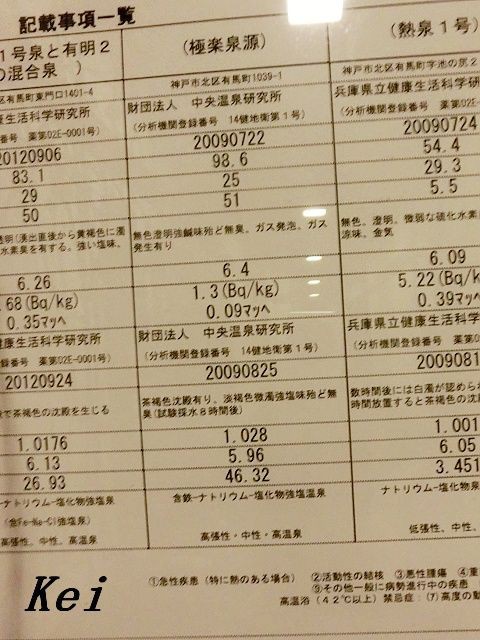 記載事項一覧
1号泉と有明2
の混合泉 )
(極楽泉源)
(熱泉1号)
区有馬町東門口1401-4
神戸市北区有馬町1039-1
神戸市北区有馬町字池の尻2
康生活科学研究所
財団法人 中央温泉研究所
兵庫県立健康生活科学研
番号 薬第02E-0001号)
(分析機関登録番号 14健地衛第1号)
(分析機関登録番号 薬第
20120906
20090722
20090724
83.1
98.6
54.4
29
25
29.3
50
51
5.5
透明(湧出直後から黄褐色に濁
水素臭を有する。強い塩味、
無色澄明強鹹味殆ど無臭、ガス発泡、ガス
発生有り
無色、澄明、微弱な硫化水素
涼味、金気
6.26
6.4
6.09
.68(Bq/kg)
1.3(Bq/kg)
5.22(Bq/kg)
0.35マッヘ
0.09マッヘ
0.39マッヘ
康生活科学研究所
財団法人 中央温泉研究所
兵庫県立健康生活科学
録番号 薬第02E-0001号)
(分析機関登録番号 14健地衛第1号)
(分析機関登録番号 薬第
20120924
20090825
2009081
で茶褐色の沈殿を生じる
茶褐色沈殿有り、淡褐色微濁強塩味殆ど無
臭(試験採水8時間後)
数時間後には白濁が認めら
時間放置すると茶褐色の沈
1.0176
1.028
1.001
6.13
5.96
6.05
26.93
46.32
3.451
-ナトリウム-塩化物強塩泉
(含Fe-Na-Cl強塩泉)
含鉄-ナトリウム-塩化物強塩温泉
ナトリウム-塩化物泉
高張性、中性、高温泉
高張性・中性・高温泉
低張性、中性、
①急性疾患(特に熱のある場合) ②活動性の結核 ③悪性腫瘍 ④重
⑨その他一般に病勢進行中の疾患
高温浴(42℃以上)禁忌症:(7)高度の動
Kei